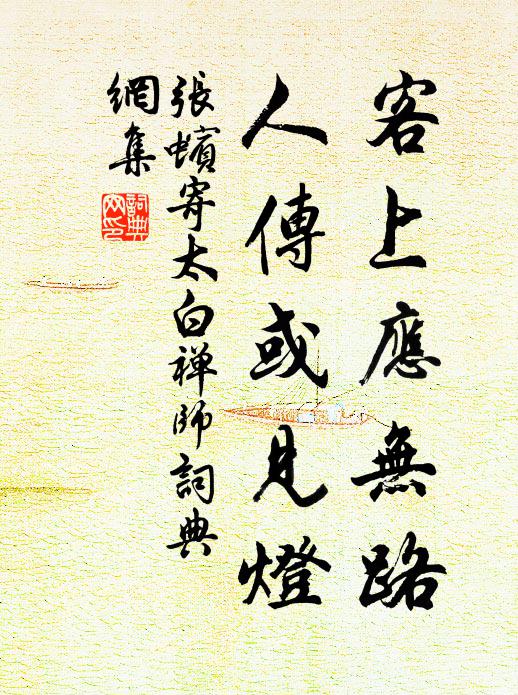 客上應無路
人傳或見燈
張蠙寄太白禅師詞典
網集
詞典
网印